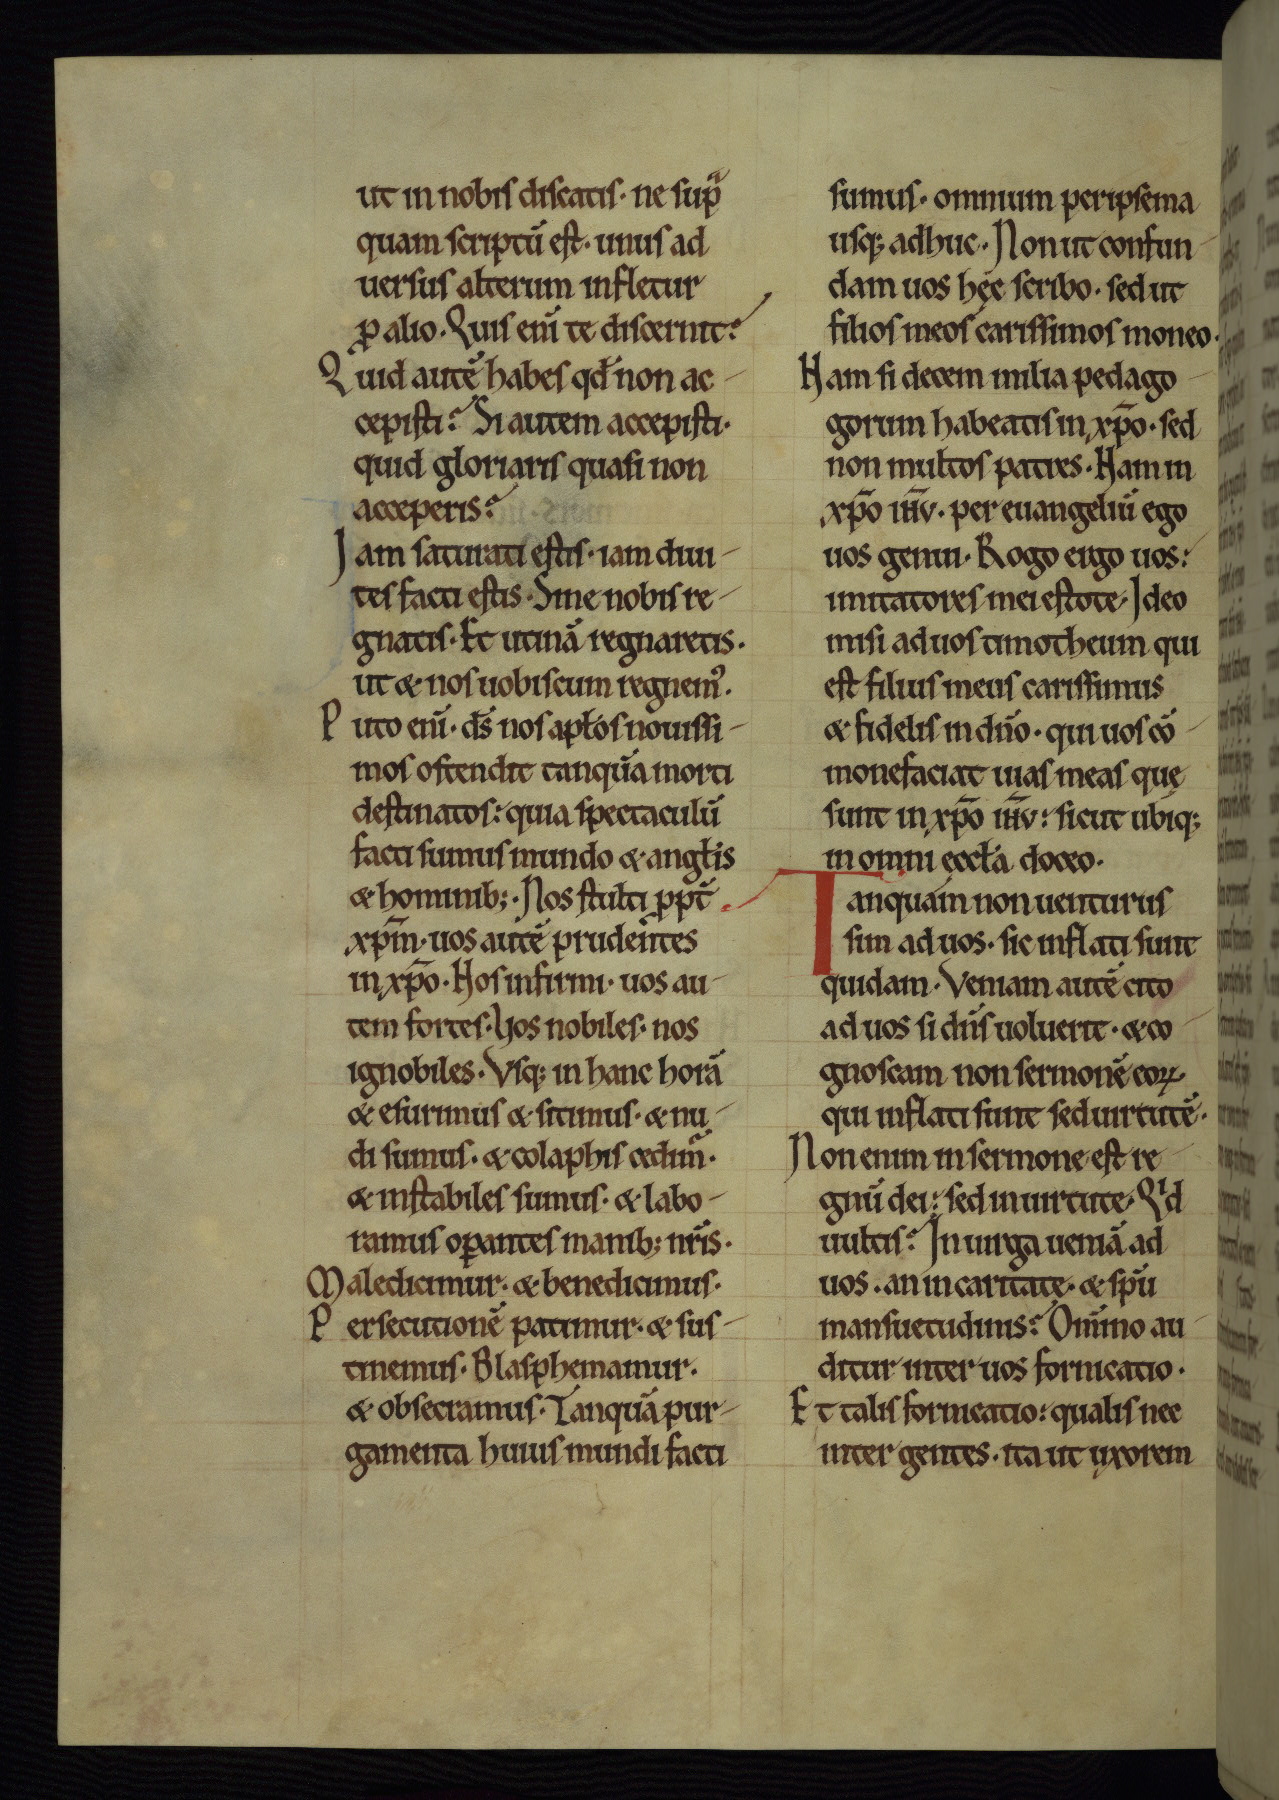 ut in nobis discatis· ne supͣ
quam scriptū est· unus ad
uersus alterum infletur
ꝓ alio· Quis eni̅ te discernit?
Quid autē habes qd̅ non ac-
cepisti? Si autem accepisti·
quid gloriaris quasi non
acceperis?
Iam saturati estis· iam diui-
tes facti estis· Sine nobis re-
gnatis· Et utinā regnaretis·
ut & nos uobiscum regnem᾿·
Puto eni̅· ds̅ nos apl̅os nouissi-
mos ostendit tanquā morti
destinatos: quia spectaculū
facti sumus mundo & angl̅is
& hominib;· Nos stulti ꝓpt̅
xp̅m· uos autē prudentes
in xp̅o· Nos infirmi· uos au-
tem fortes· Uos nobiles· nos
ignobiles· Vsq; in hanc horā
& esurimus & sitimus· & nu-
di sumus· & colaphis cedimͬ·
& instabiles sumus· & labo-
ramus oꝑantes manib; nr̅is·
Maledicimur· & benedicimus·
Persecutionē patimur· & sus-
tinemus· Blasphemamur·
& obsecramus· Tanquā pur-
gamenta huius mundi facti
sumus· omnium peripsema
usq; adhuc· Non ut confun-
dam uos hęc scribo· sed ut
filios meos carissimos moneo·
Nam si decem milia pedago-
gorum habeatis in xp̅o· sed
non multos patres· Nam in
xp̅o ih̅v· per euangeliū ego
uos genui· Rogo ergo uos:
imitatores mei estote· Ideo
misi ad uos timotheum qui
est filius meus carissimus
& fidelis in dn̅o· qui uos cō-
monefaciat uias meas quę
sunt in xp̅o ih̅v: sicut ubiq;
in omni ęccl̅a doceo·
Tanquam non uenturus
sim ad uos· sic inflati sunt
quidam· Veniam autē cito
ad uos si dn̅s uoluerit· & co-
gnoscam non sermonē eoꝝ
qui inflati sunt sed uirtutē·
Non enim in sermone est re-
gnū dei: sed in uirtute· Qͥd
uultis? In uirga ueniā ad
uos· an in caritate· & sp̅u
mansuetudinis? Om̅ino au-
ditur inter uos fornicatio·
Et talis fornicatio: qualis nec
inter gentes· ita ut uxorem